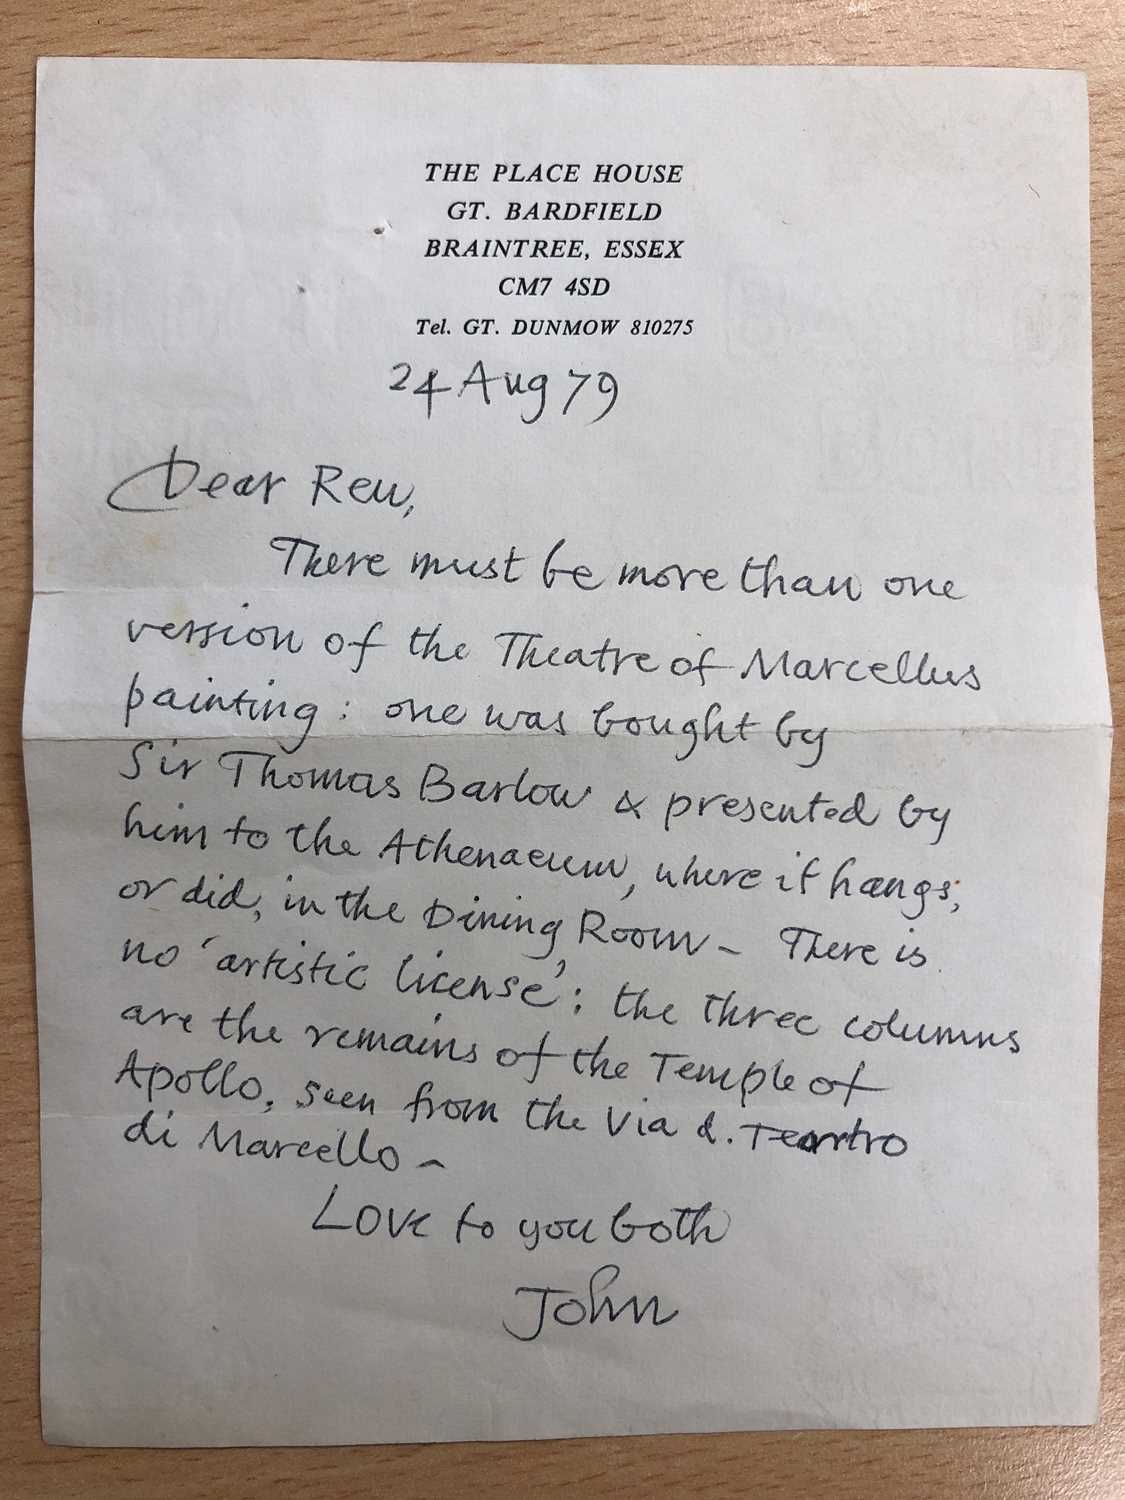 THE PLACE HOUSE
GT. BARDFIELD
BRAINTREE, ESSEX
CM7 4SD
Tel. GT. DUNMOW 810275
24 Aug 79
Dear Rew,
There must be more than one
version of the Theatre of Marcellus
painting: one was bought by
Sir Thomas Barlow & presented by
him to the Athenaeum, where it hangs,
or did, in the Dining Room – There is
no 'artistic license': the three columns
are the remains of the Temple of
Apollo, seen from the Via d. Teatro
di Marcello –
Love to you both
John